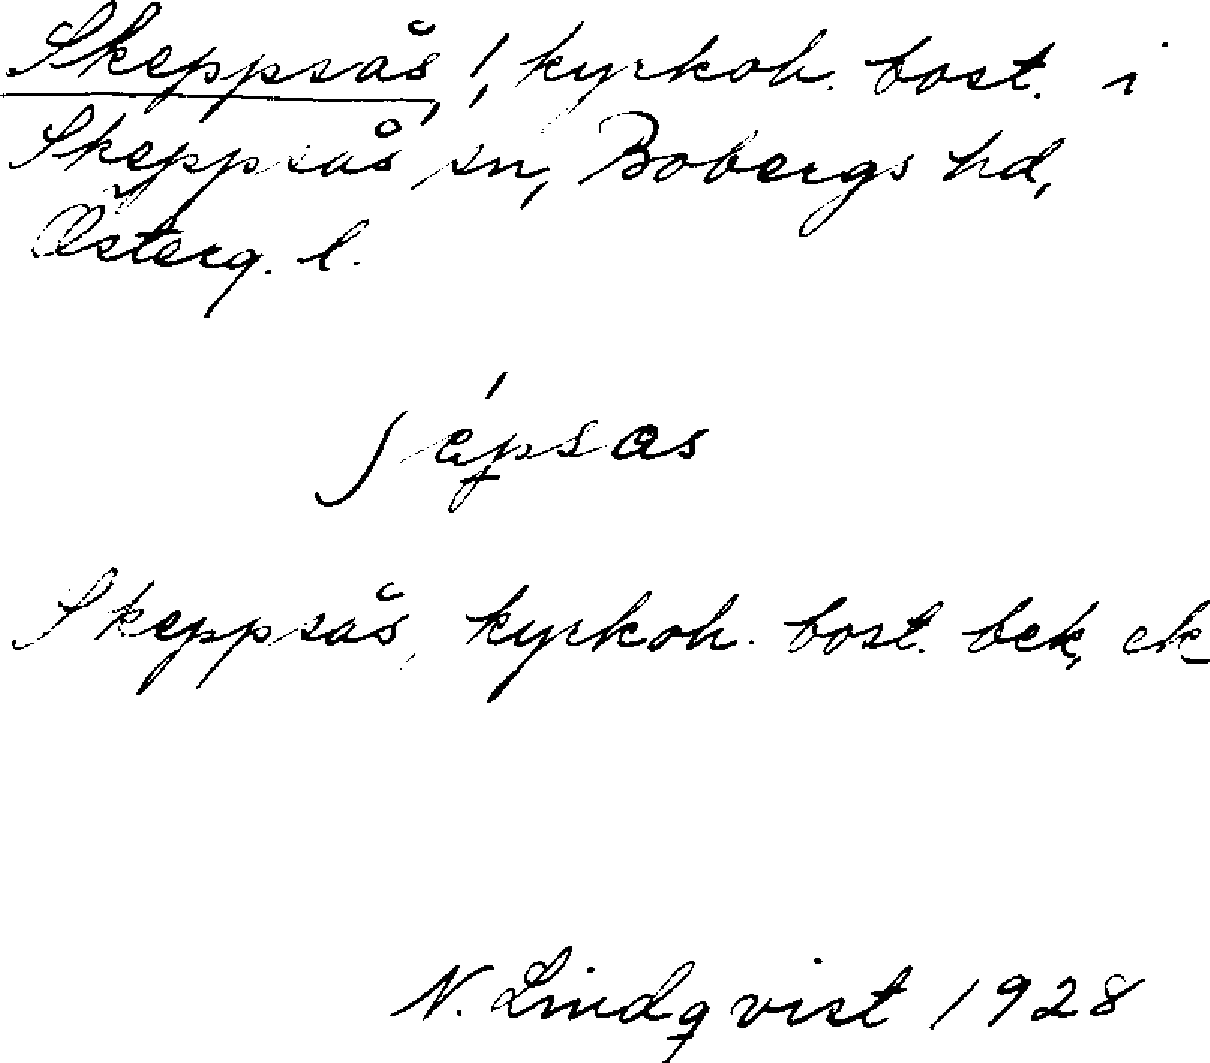 Skeppsås, !, kyrkoh. bost. i
Skeppsås sn, Bobergs hd,
Österg. l.
Skeppsås, kyrkoh. bost. bek, ek
N. Lindqvist 1928